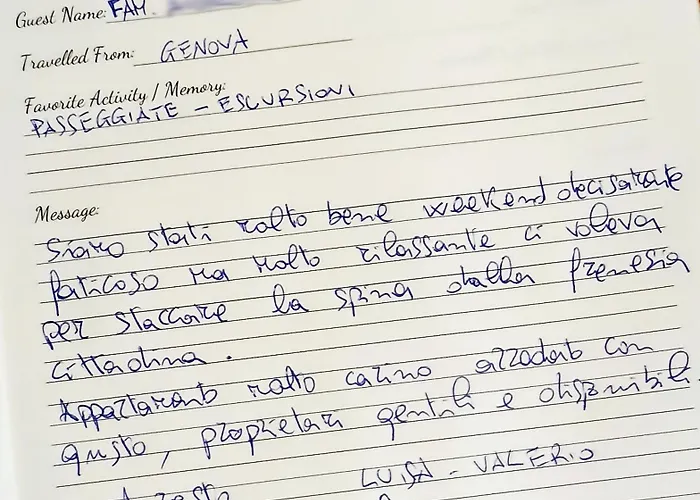 Guest Name: FAM.
Travelled From: GENOVA
Favorite Activity / Memory:
PASSEGGIATE - ESCURSIONI
Message:
Siamo stati molto bene weekend decisamente
faticoso ma molto rilassante ci voleva
per staccare la spina dalla frenesia
cittadina.
Appartamento molto carino arredato con
gusto, proprietari gentili e disponibili.
LUISA - VALERIO